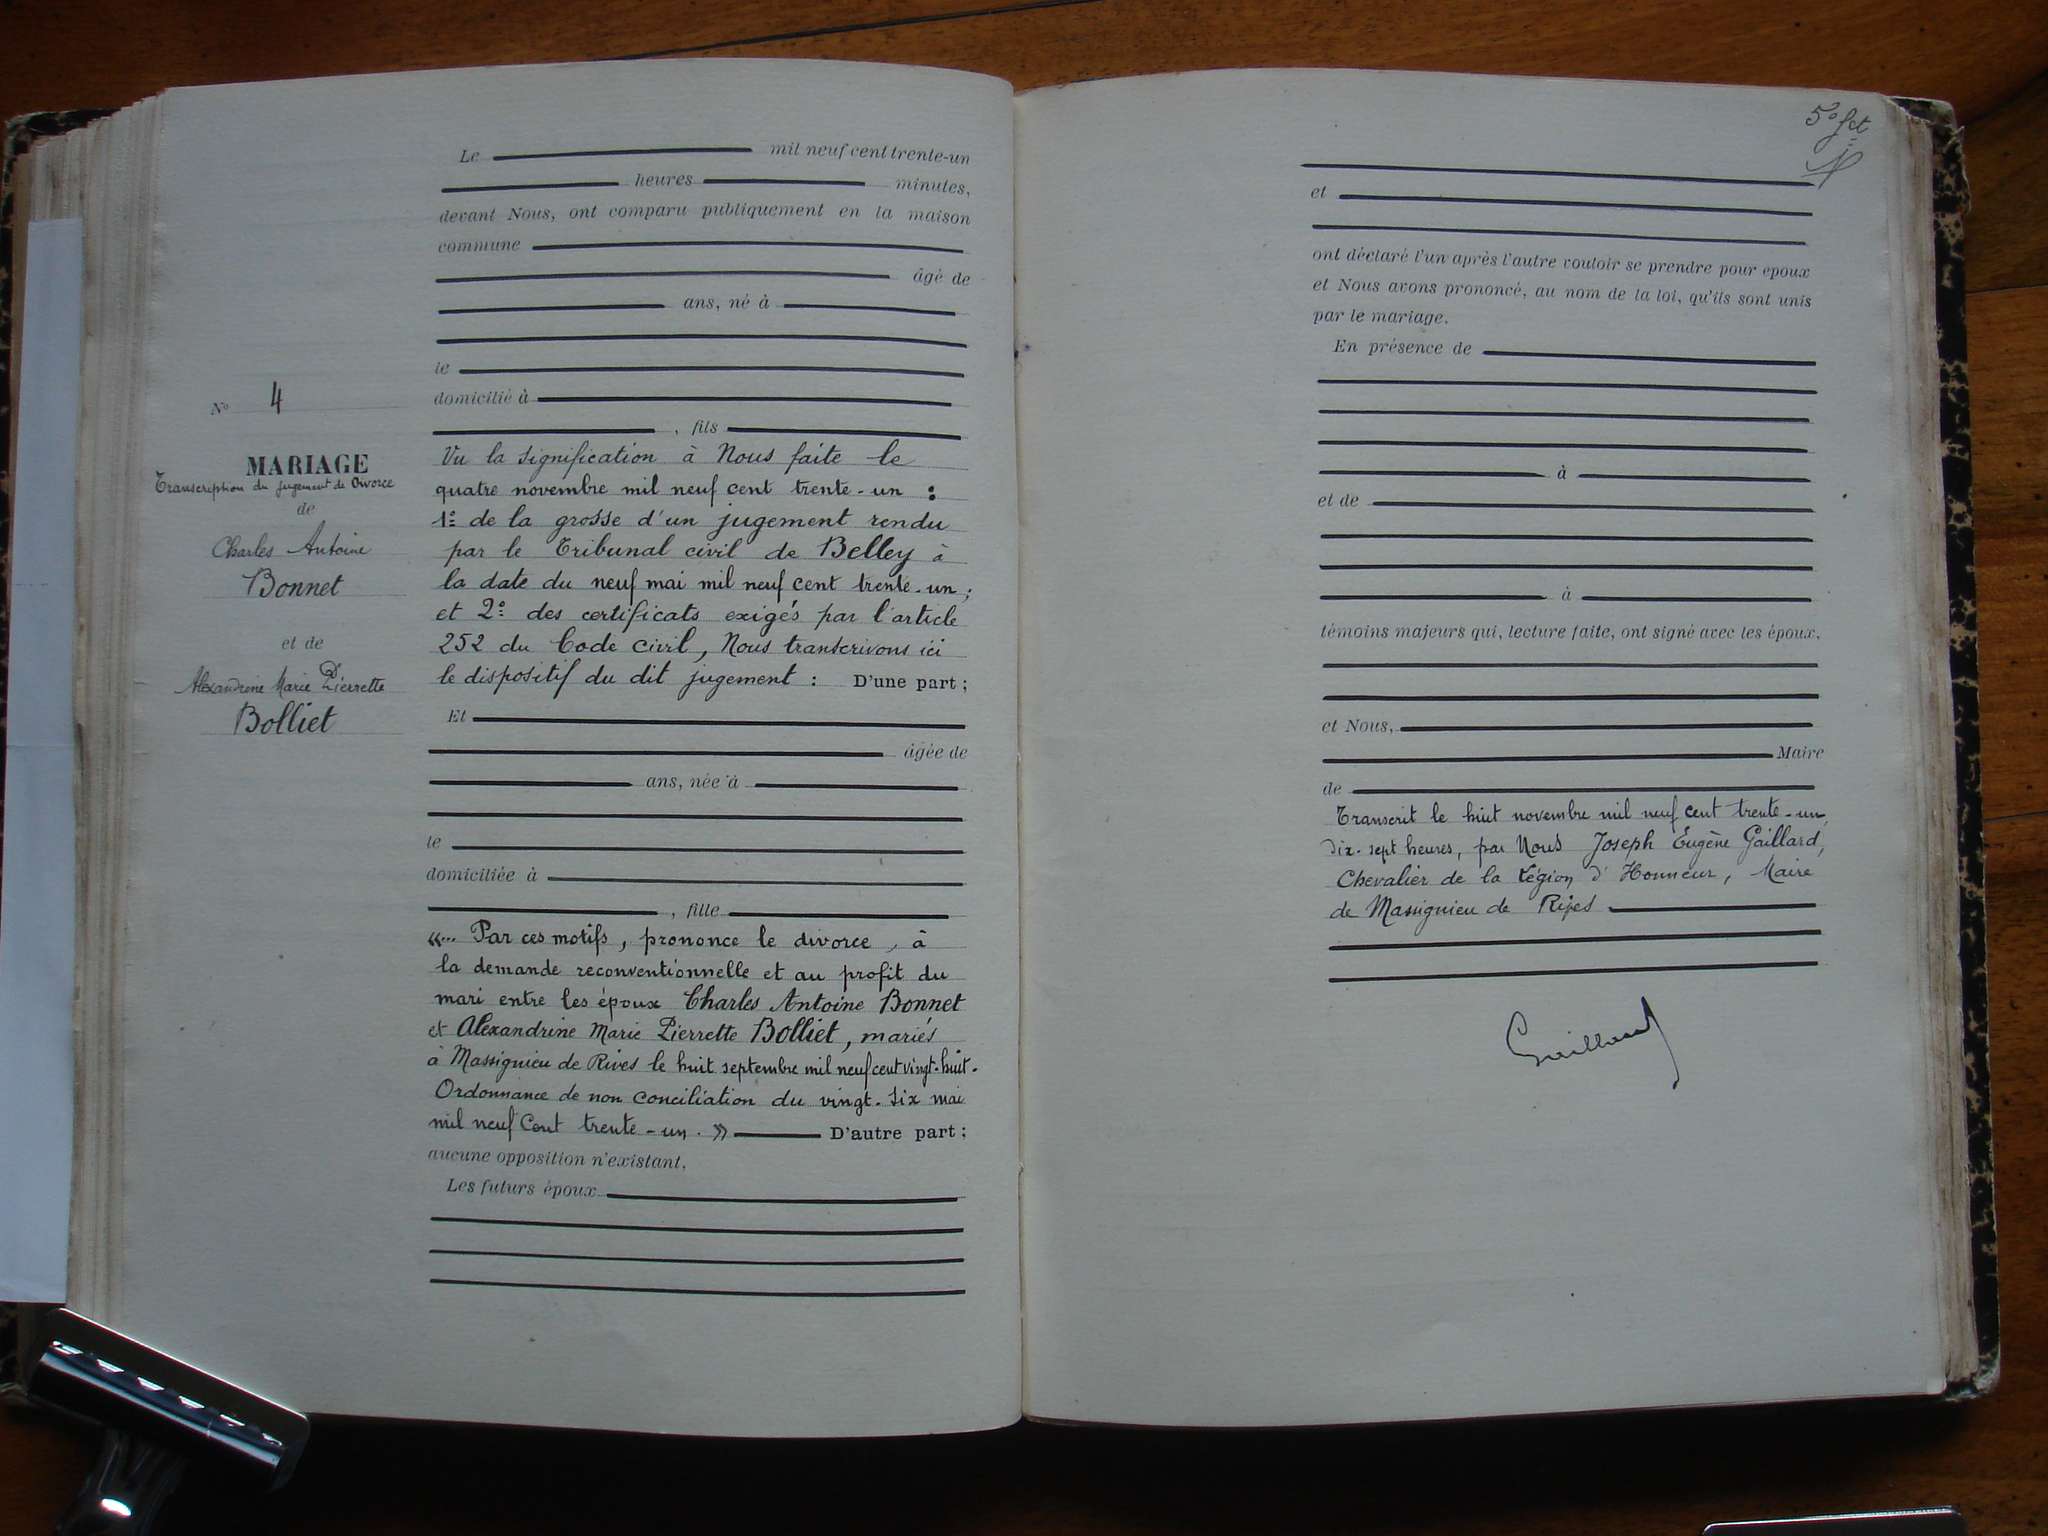 N° 4
MARIAGE
Transcription du jugement de Divorce
de
Charles Antoine
Bonnet
et de
Alexandrine Marie Pierrette
Bolliet
Le mil neuf cent trente-un
heures minutes,
devant Nous, ont comparu publiquement en la maison
commune
âgé de
ans, né à
le
domicilié à
, fils
Vu la signification à Nous faite le
quatre novembre mil neuf cent trente-un :
1° de la grosse d'un jugement rendu
par le Tribunal civil de Belley à
la date du neuf mai mil neuf cent trente-un ;
et 2° des certificats exigés par l'article
252 du Code civil, Nous transcrivons ici
le dispositif du dit jugement : D'une part ;
Et
âgée de
ans, née à
le
domiciliée à
, fille
«... Par ces motifs, prononce le divorce, à
la demande reconventionnelle et au profit du
mari entre les époux Charles Antoine Bonnet
et Alexandrine Marie Pierrette Bolliet, mariés
à Massignieu de Rives le huit septembre mil neuf cent vingt-huit.
Ordonnance de non conciliation du vingt-six mai
mil neuf Cent trente-un. » D'autre part ;
aucune opposition n'existant.
Les futurs époux
5° fet
et
ont déclaré l'un après l'autre vouloir se prendre pour époux
et Nous avons prononcé, au nom de la loi, qu'ils sont unis
par le mariage.
En présence de
à
et de
à
témoins majeurs qui, lecture faite, ont signé avec les époux.
et Nous,
Maire
de
Transcrit le huit novembre mil neuf cent trente-un,
dix-sept heures, par Nous Joseph Eugène Gaillard,
Chevalier de la Légion d'Honneur, Maire
de Massignieu de Rives
Gaillard